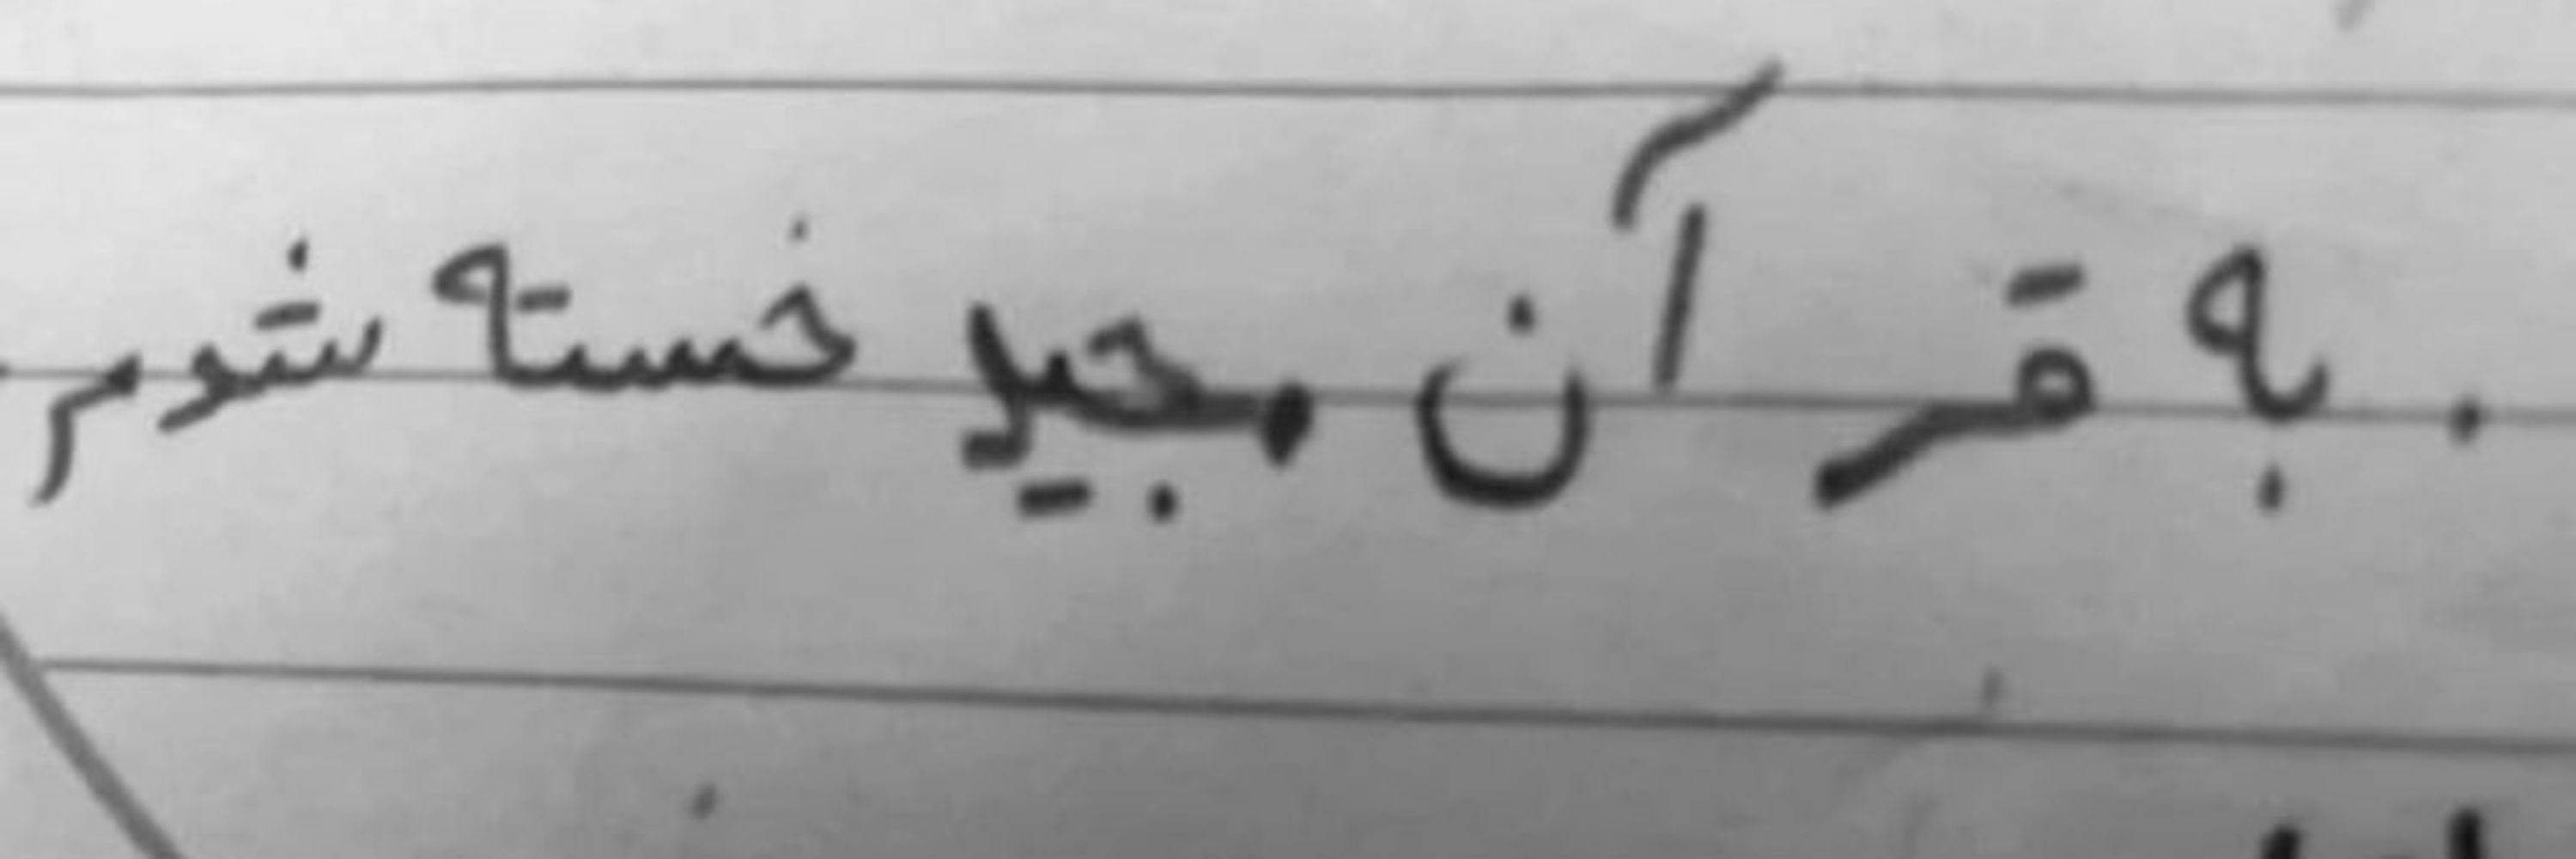 . به قرآن مجید خسته شوم